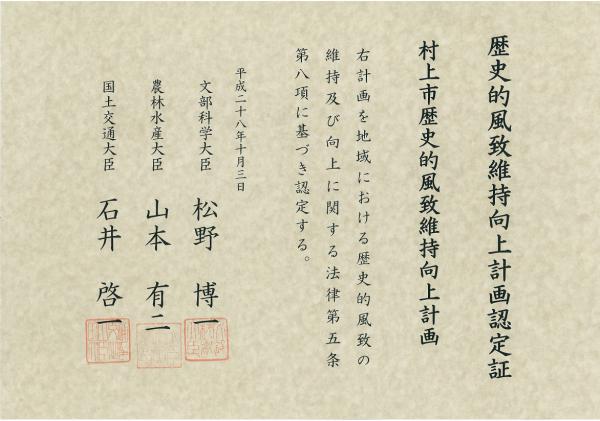 歴史的風致維持向上計画認定証
村上市歴史的風致維持向上計画
右計画を地域における歴史的風致の
維持及び向上に関する法律第五条
第八項に基づき認定する。
平成二十八年十月三日
文部科学大臣 松野 博一
農林水産大臣 山本 有二
国土交通大臣 石井 啓一